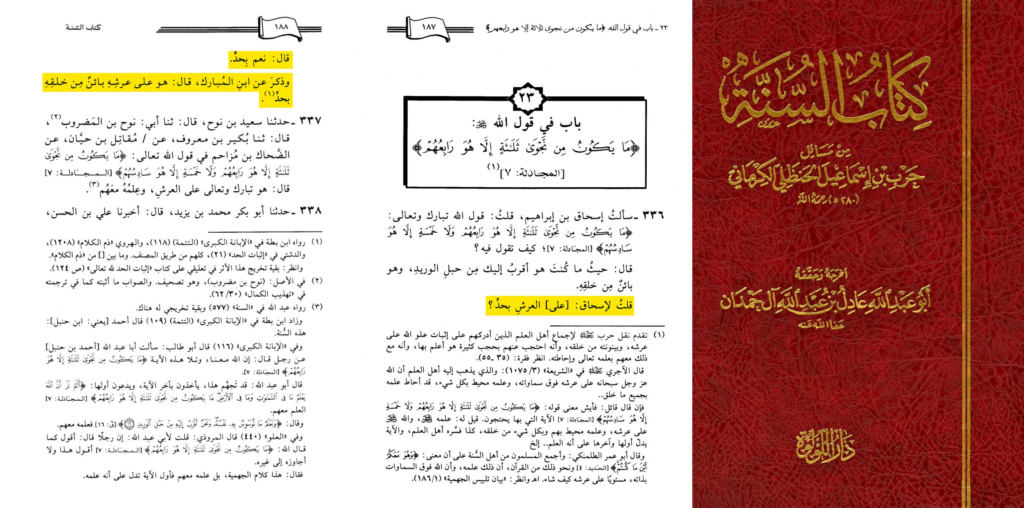 كتاب السنة
من مسائل
حرب بن إسماعيل الحنظلي الكرماني
(٢٨٠هـ) رحمه الله
أخرجه وحققه
أبو عبد الله عادل بن عبد الله آل حمدان
عفا الله عنه
دار اللؤلؤة
٢٣ ـ باب في قول الله: ﴿ما يكون من نجوى ثلاثة إلا هو رابعهم﴾
١٨٧
٢٣
باب في قول الله ﷻ:
﴿مَا يَكُونُ مِن نَّجْوَىٰ ثَلَٰثَةٍ إِلَّا هُوَ رَابِعُهُمْ﴾
[المجادلة: ٧](١)
٣٣٦ ـ سألتُ إسحاق بن إبراهيم، قلتُ: قول الله تبارك وتعالى:
﴿مَا يَكُونُ مِن نَّجْوَىٰ ثَلَٰثَةٍ إِلَّا هُوَ رَابِعُهُمْ وَلَا خَمْسَةٍ إِلَّا هُوَ
سَادِسُهُمْ﴾ [المجادلة: ٧]؛ كيف تقول فيه؟
قال: حيثُ ما كُنتَ هو أقربُ إليك مِن حبلِ الوريدِ، وهو
بائنٌ مِن خلقِهِ.
قلتُ لإسحاق: [على] العرشِ بحدٍّ؟
(١) تقدم نقل حرب رحمه الله لإجماع أهل العلم الذين أدركهم على إثبات علو الله على
عرشه، وبينونته من خلقه، وأنه احتجب عنهم بحجب كثيرة هو أعلم بها، وأنه مع
ذلك معهم بعلمه تعالى وإحاطته. انظر فقرة: (٣٥ ـ٥٥).
قال الآجري رحمه الله في «الشريعة» (١٠٧٥/٣): والذي يذهب إليه أهل العلم أن الله
عز وجل سبحانه على عرشه فوق سماواته، وعلمه محيط بكل شيء، قد أحاط علمه
بجميع ما خلق..
فإن قال قائل: فأيش معنى قوله: ﴿مَا يَكُونُ مِن نَّجْوَىٰ ثَلَٰثَةٍ إِلَّا هُوَ رَابِعُهُمْ وَلَا خَمْسَةٍ
إِلَّا هُوَ سَادِسُهُمْ﴾ [المجادلة: ٧] الآية التي بها يحتجون. قيل له: علمه ﷻ، والله ﷻ
على عرشه، وعلمه محيط بهم وبكل شيء من خلقه، كذا فسَّره أهل العلم، والآية
يدلّ أولها وآخرها على أنه العلم.. إلخ
وقال أبو عمر الطلمنكي: وأجمع المسلمون من أهل السُّنة على أن معنى: ﴿وَهُوَ مَعَكُمْ
أَيْنَ مَا كُنتُمْ﴾ [الحديد: ٤] ونحو ذلك من القرآن، أن ذلك علمه، وأن الله فوق السماوات
بذاته، مستويًا على عرشه كيف شاء. اهـ وانظر: «بيان تلبيس الجهمية» (١٨٦/١).
١٨٨
كتاب السُّنة
قال: نعم بِحدٍّ.
وذكرَ عن ابنِ المُبارك، قال: هو على عرشِهِ بائنٌ مِن خلقِهِ
بحدٍّ(١).
٣٣٧ ـ حدثنا سعيد بن نوح، قال: ثنا أبي: نوح بن المَضروب(٢)،
قال: ثنا بُكير بن معروف، عن / مقاتِل بن حيَّان، عن
الضَّحاك بن مُزاحم في قول الله تعالى: ﴿مَا يَكُونُ مِن نَّجْوَىٰ
ثَلَٰثَةٍ إِلَّا هُوَ رَابِعُهُمْ وَلَا خَمْسَةٍ إِلَّا هُوَ سَادِسُهُمْ﴾ [المجادلة: ٧]
قال: هو تبارك وتعالى على العرشِ، وعِلمُه معَهُم(٣).
٣٣٨ ـ حدثنا أبو بكر محمد بن يزيد، قال: أخبرنا علي بن الحسن،
(١) رواه ابن بطة في «الإبانة الكبرى» (التتمة) (١١٨)، والهروي «ذم الكلام» (١٢٠٨)،
والدشتي في «إثبات الحد» (٢١)، كلهم من طريق المصنف. وما بين [] من «ذم الكلام».
وانظر: بقية تخريج هذا الأثر في تعليقي على كتاب «إثبات الحد لله تعالى» (ص ١٢٤).
(٢) في الأصل: (نوح بن مضروب)، وهو تصحيف. والصواب ما أثبته كما في ترجمته
في «تهذيب الكمال» (٦٢/٣٠).
(٣) رواه عبد الله في «السنة» (٥٧٧) وبقية تخريجي له هناك.
وزاد ابن بطة في «الإبانة الكبرى» (التتمة) (١٠٩) قال أحمد [يعني: ابن حنبل]:
هذه السُّنة.
وفي «الإبانة الكبرى» (١١٦) قال أبو طالب: سألت أبا عبد الله [أحمد بن حنبل]
عن رجل قال: إن الله معنا، وتلا هذه الآية ﴿مَا يَكُونُ مِن نَّجْوَىٰ ثَلَٰثَةٍ إِلَّا هُوَ
رَابِعُهُمْ﴾ [المجادلة: ٧]
قال أبو عبد الله: قد تَجهَّم هذا، يأخذون بآخر الآية، ويدعون أولها: ﴿أَلَمْ تَرَ أَنَّ اللَّهَ
يَعْلَمُ مَا فِي السَّمَٰوَٰتِ وَمَا فِي الْأَرْضِ مَا يَكُونُ مِن نَّجْوَىٰ ثَلَٰثَةٍ إِلَّا هُوَ رَابِعُهُمْ﴾ [المجادلة: ٧]
العلم معهم.
وقال: ﴿وَنَعْلَمُ مَا تُوَسْوِسُ بِهِ نَفْسُهُ وَنَحْنُ أَقْرَبُ إِلَيْهِ مِنْ حَبْلِ الْوَرِيدِ ١٦﴾ [ق: ١٦] فعلمه معهم.
وفي «العلو» (٤٤٠) قال المروذي: قلت لأبي عبد الله: إن رجلًا قال: أقول كما
قال الله: ﴿مَا يَكُونُ مِن نَّجْوَىٰ ثَلَٰثَةٍ إِلَّا هُوَ رَابِعُهُمْ﴾ [المجادلة: ٧] أقول هذا ولا
أجاوزه إلى غيره.
فقال: هذا كلام الجهمية، بل علمه معهم فأول الآية تدل على أنه علمه.